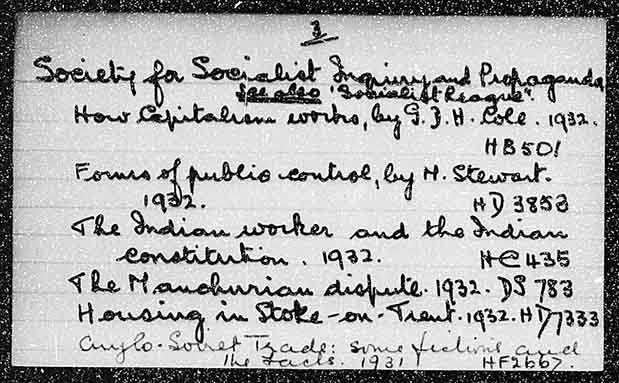 3
Society for Socialist Inquiry and Propaganda
See also "Socialist League".
How Capitalism works, by G. D. H. Cole. 1932.
HB501
Forms of public control, by H. Stewart.
1932. HD 3853
The Indian worker and the Indian
constitution. 1932. HC435
The Manchurian dispute. 1932. DS 783
Housing in Stoke-on-Trent. 1932. HD7333
Anglo-Soviet Trade: some fictions and
the facts. 1931 HF2667.